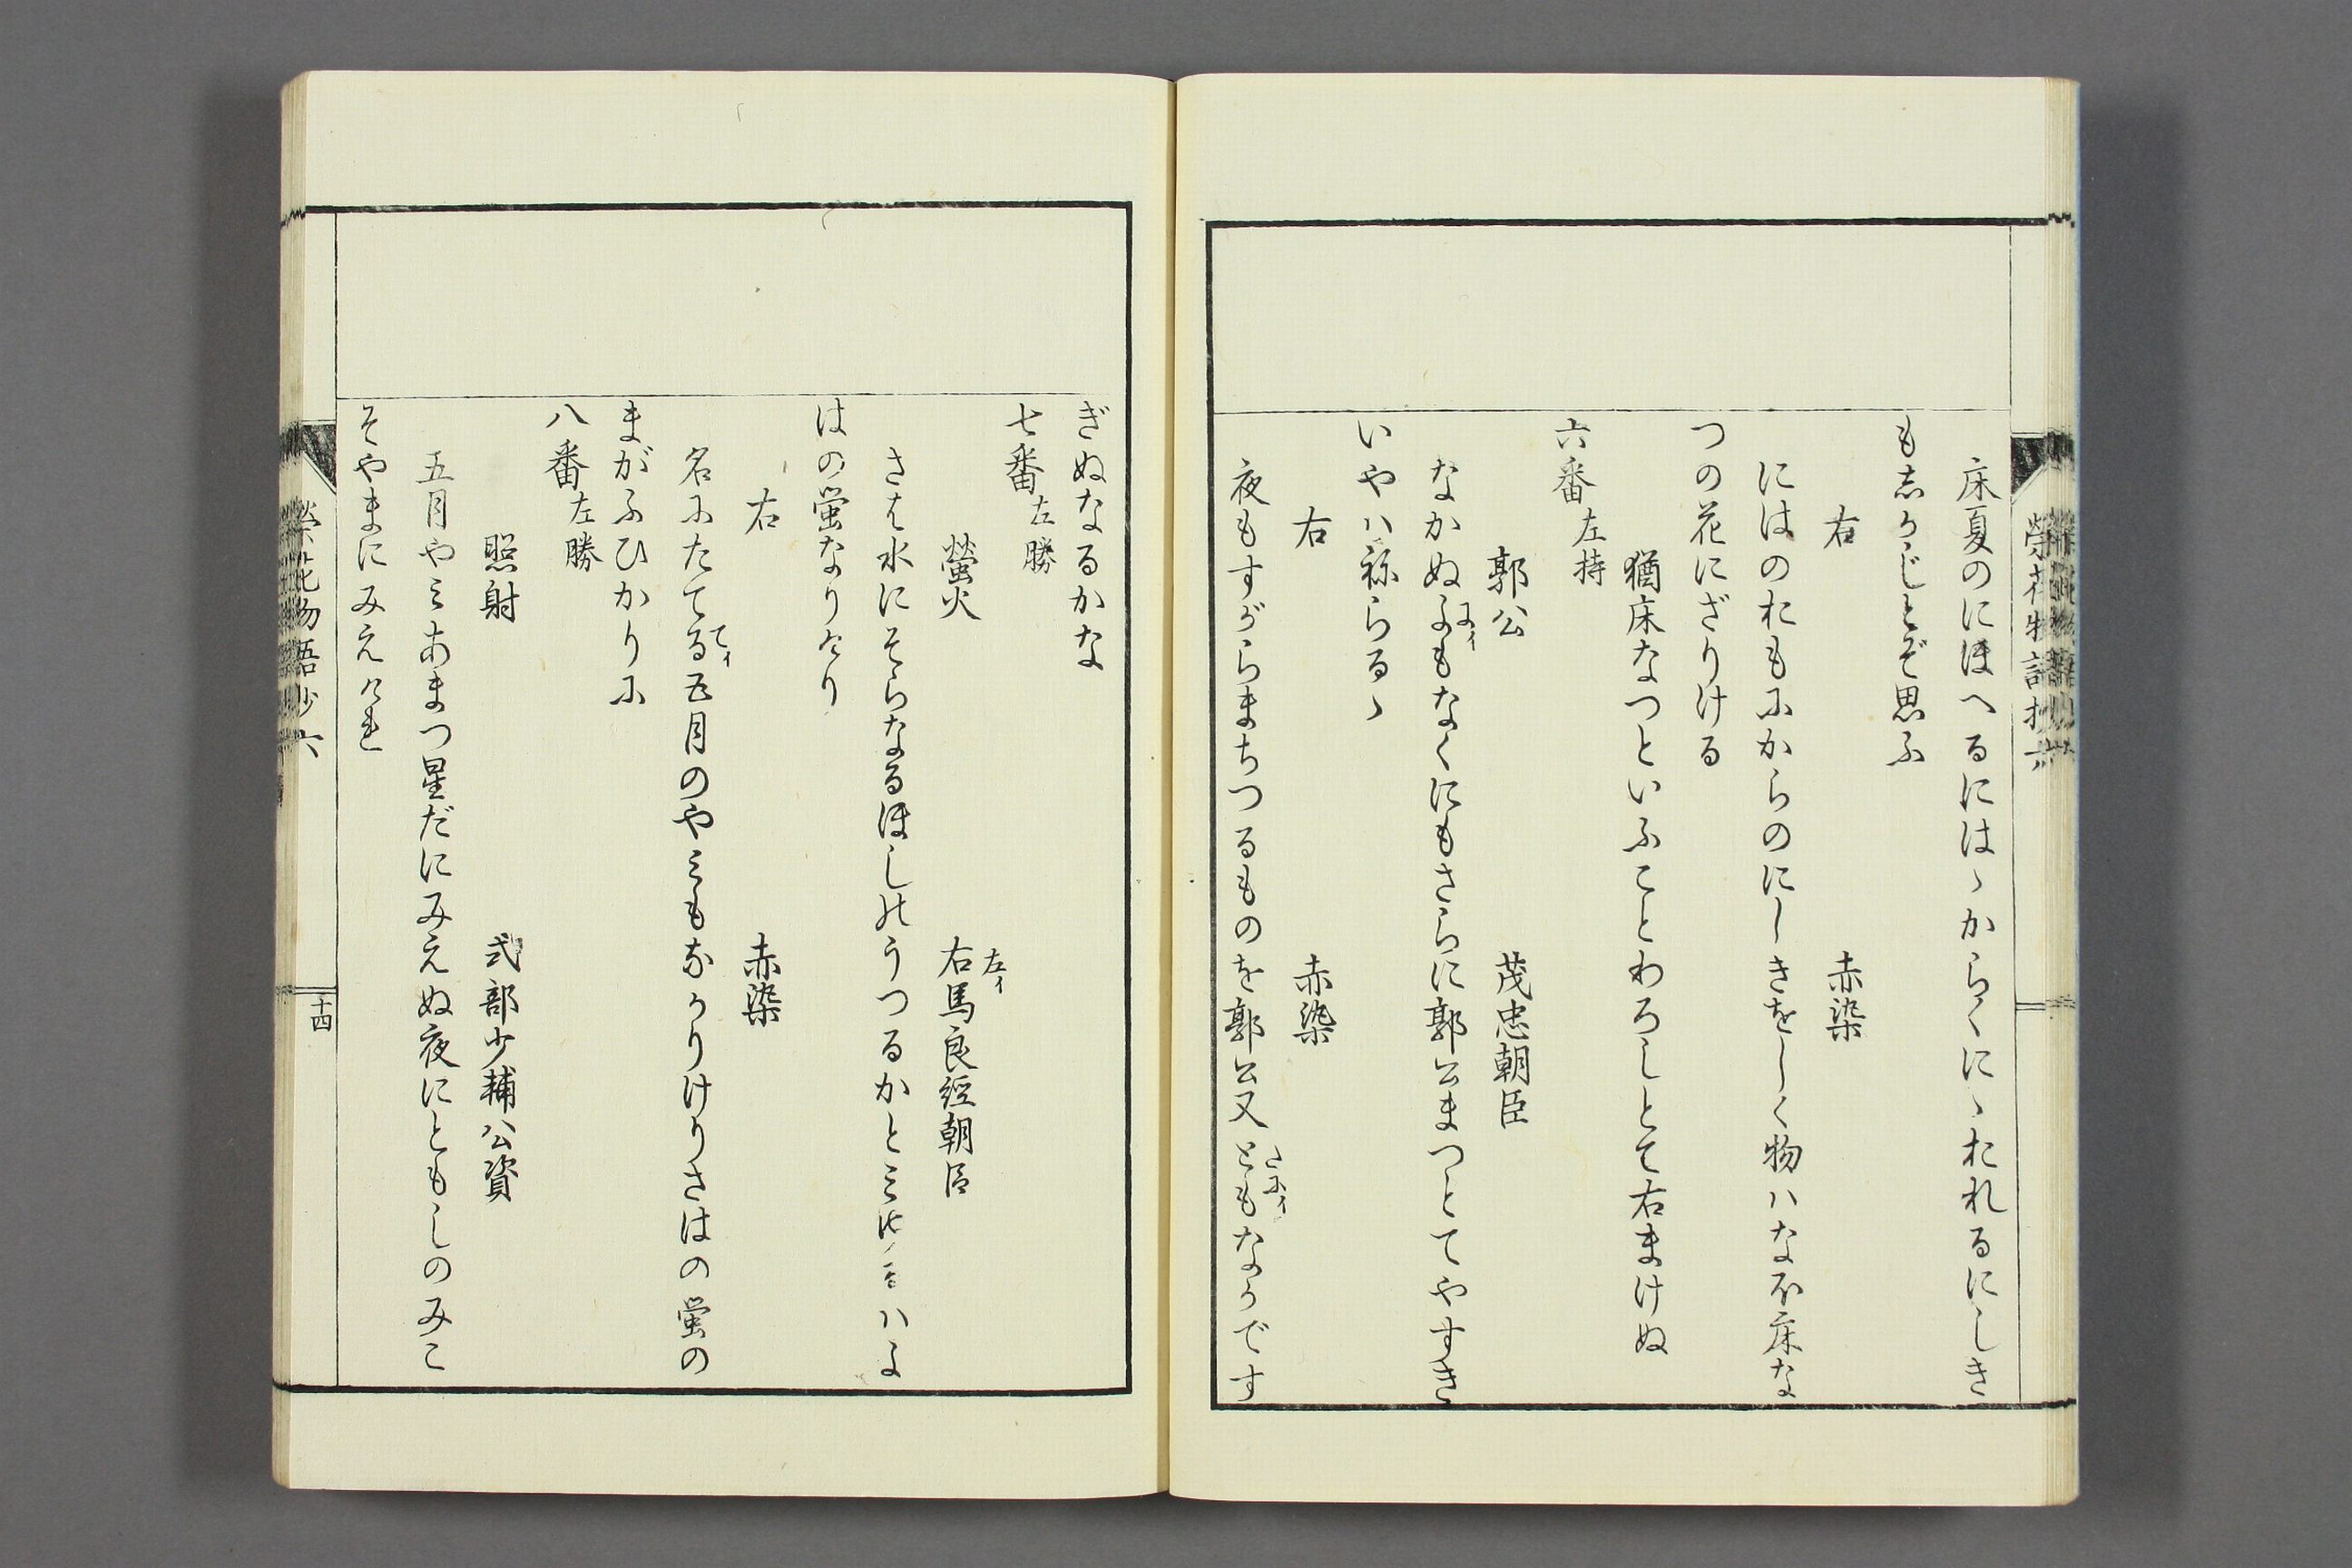 床夏のにほへるにはゝからくにゝおれるにしき
もしかじとぞ思ふ
右　赤染
にはのおもにからのにしきをしく物ハなほ床な
つの花にざりける
猶床なつといふことわろしとて右まけぬ
六番左持
郭公　茂忠朝臣
なかぬよもなくにもさらに郭公まつとてやすき
いやハねらるゝ
右　赤染
夜もすがらまちつるものを郭公又ともなかです
ぎぬなるかな
七番左勝
螢火　右馬良経朝臣
左イ
さは水にそらなるほしのうつるかとミゆるハよ
はの蛍なりけり
右　赤染
名にたてる五月のやミもなかりけりさはの蛍の
てイ
まがふひかりに
八番左勝
照射　式部少輔公資
五月やミあまつ星だにみえぬ夜にともしのみこ
そやまにみえけれ
榮花物語抄六
十四